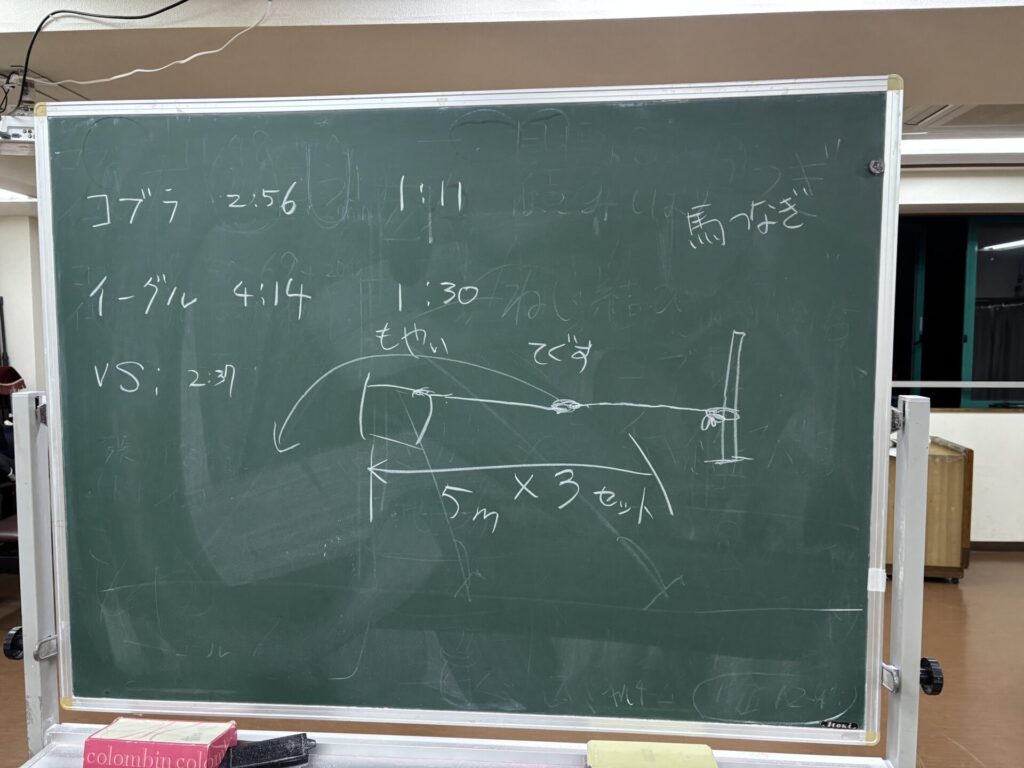 コブラ 2:56 1:11
馬つなぎ
イーグル 4:14 1:30
もやい
てぐす
VS: 2:37
5m × 3 セット
colombin colo